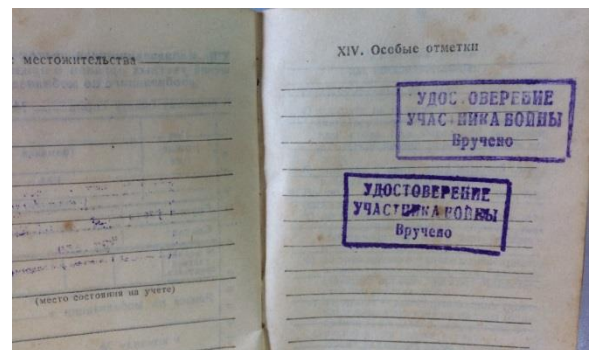 местожительства
(место состояния на учете)
XIV. Особые отметки
УДОСТОВЕРЕНИЕ
УЧАСТНИКА ВОЙНЫ
Вручено
УДОСТОВЕРЕНИЕ
УЧАСТНИКА ВОЙНЫ
Вручено